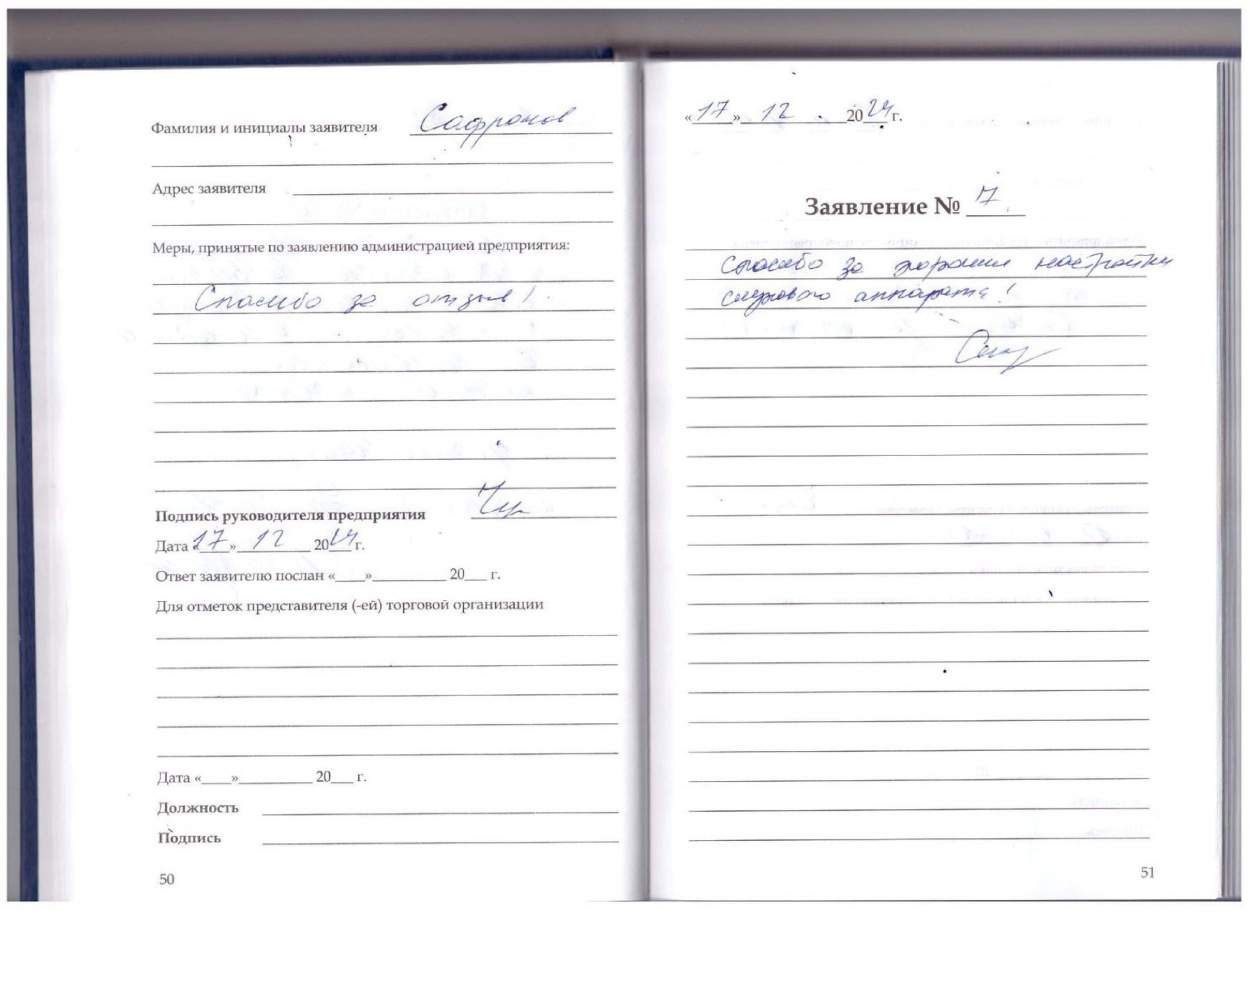 Фамилия и инициалы заявителя Сафронов
Адрес заявителя
Меры, принятые по заявлению администрацией предприятия:
Спасибо за отзыв!
Подпись руководителя предприятия
Дата «17» 12 2024 г.
Ответ заявителю послан «____»__________ 20___ г.
Для отметок представителя (-ей) торговой организации
Дата «____»__________ 20___ г.
Должность
Подпись
50
«17» 12 . 2024 г.
Заявление № 7
Спасибо за хорошие настройки
слухового аппарата!
51